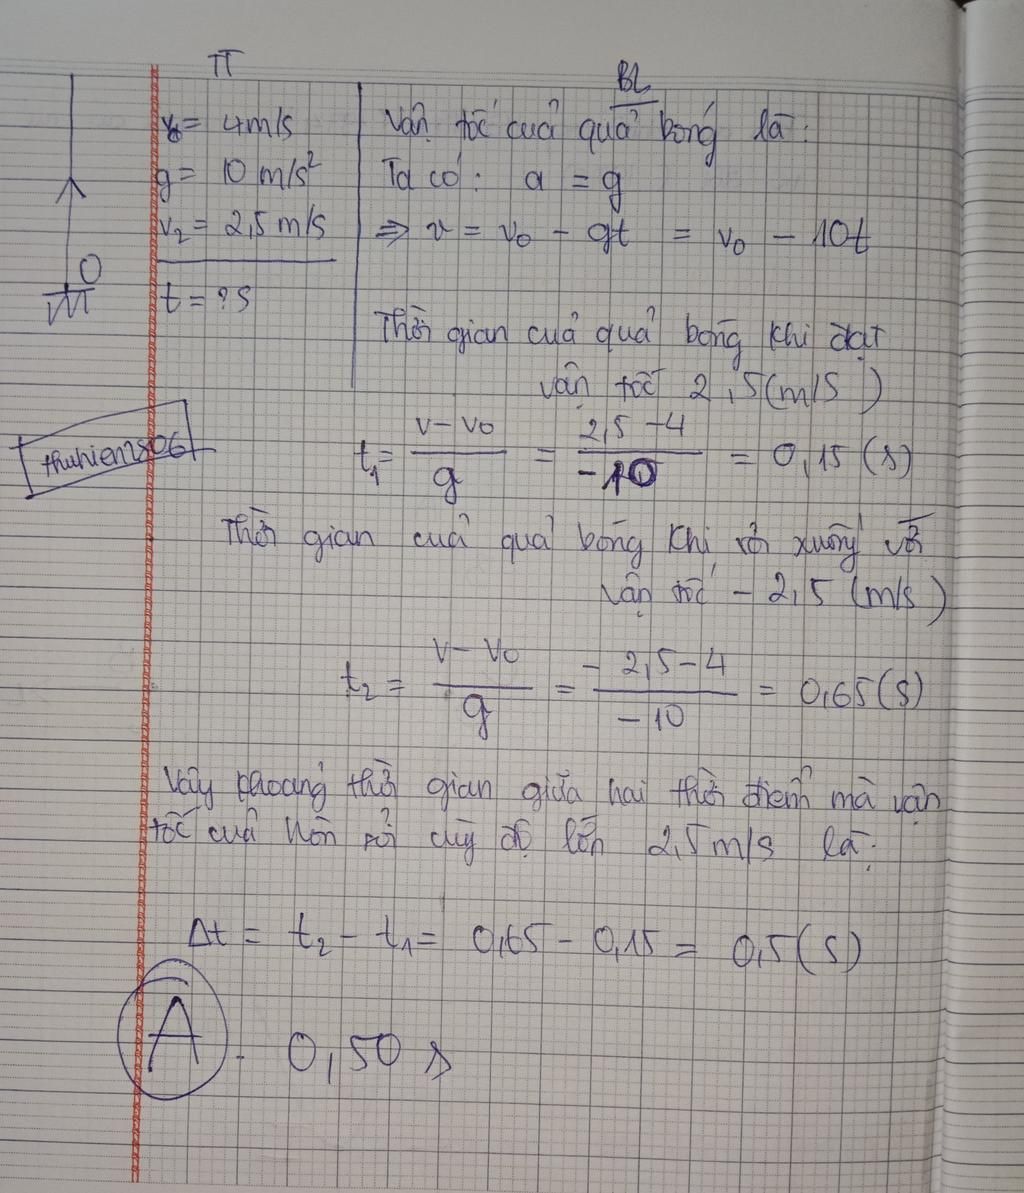 TT
BL
v₀ = 4m/s
g = 10 m/s²
v₂ = 2,5 m/s
t = ? s
O
Vận tốc cuả quả bóng là:
Ta có: a = g
⇒ v = v₀ - gt = v₀ - 10t
Thời gian cuả quả bóng khi đạt
vận tốc 2,5(m/s)
thuhien2806
t₁ = (v - v₀)/g = (2,5 - 4)/(-10) = 0,15 (s)
Thời gian cuả quả bóng khi rơi xuống với
vận tốc - 2,5 (m/s)
t₂ = (v - v₀)/g = (- 2,5 - 4)/(-10) = 0,65 (s)
Vậy khoảng thời gian giữa hai thời điểm mà vận
tốc cuả hòn sỏi cùng độ lớn 2,5 m/s là:
Δt = t₂ - t₁ = 0,65 - 0,15 = 0,5 (s)
A. 0,50 s